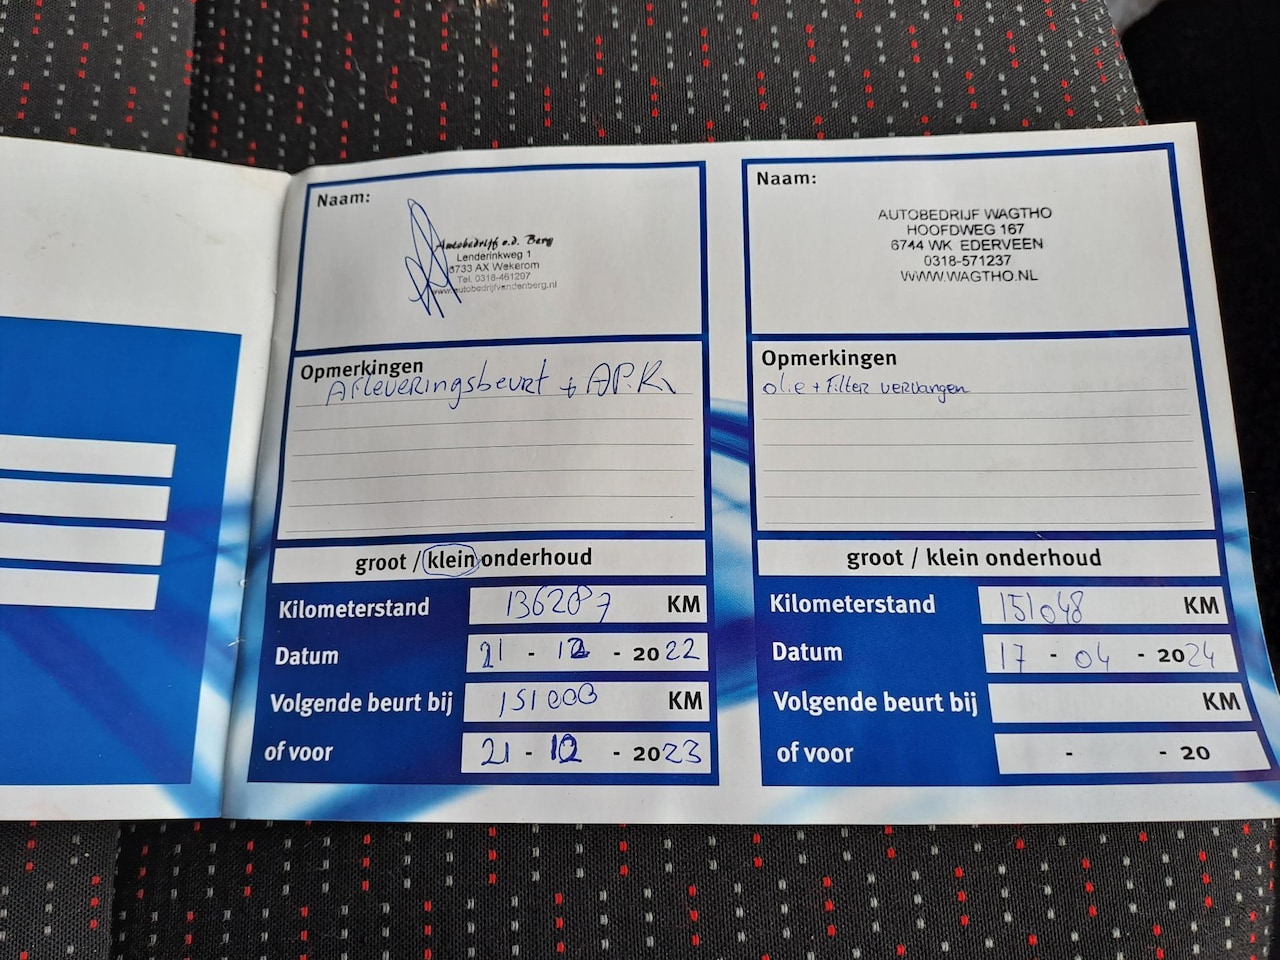 Naam:
Autobedrijf v.d. Berg
Lenderinkweg 1
6733 AX Wekerom
Tel. 0318-461207
www.autobedrijfvandenberg.nl
Opmerkingen
Afleveringsbeurt + APK
groot / klein onderhoud
Kilometerstand 136287 KM
Datum 21 - 12 - 2022
Volgende beurt bij 151000 KM
of voor 21 - 12 - 2023
Naam:
AUTOBEDRIJF WAGTHO
HOOFDWEG 167
6744 WK EDERVEEN
0318-571237
WWW.WAGTHO.NL
Opmerkingen
olie + Filter vervangen
groot / klein onderhoud
Kilometerstand 151048 KM
Datum 17 - 04 - 2024
Volgende beurt bij KM
of voor - - 20